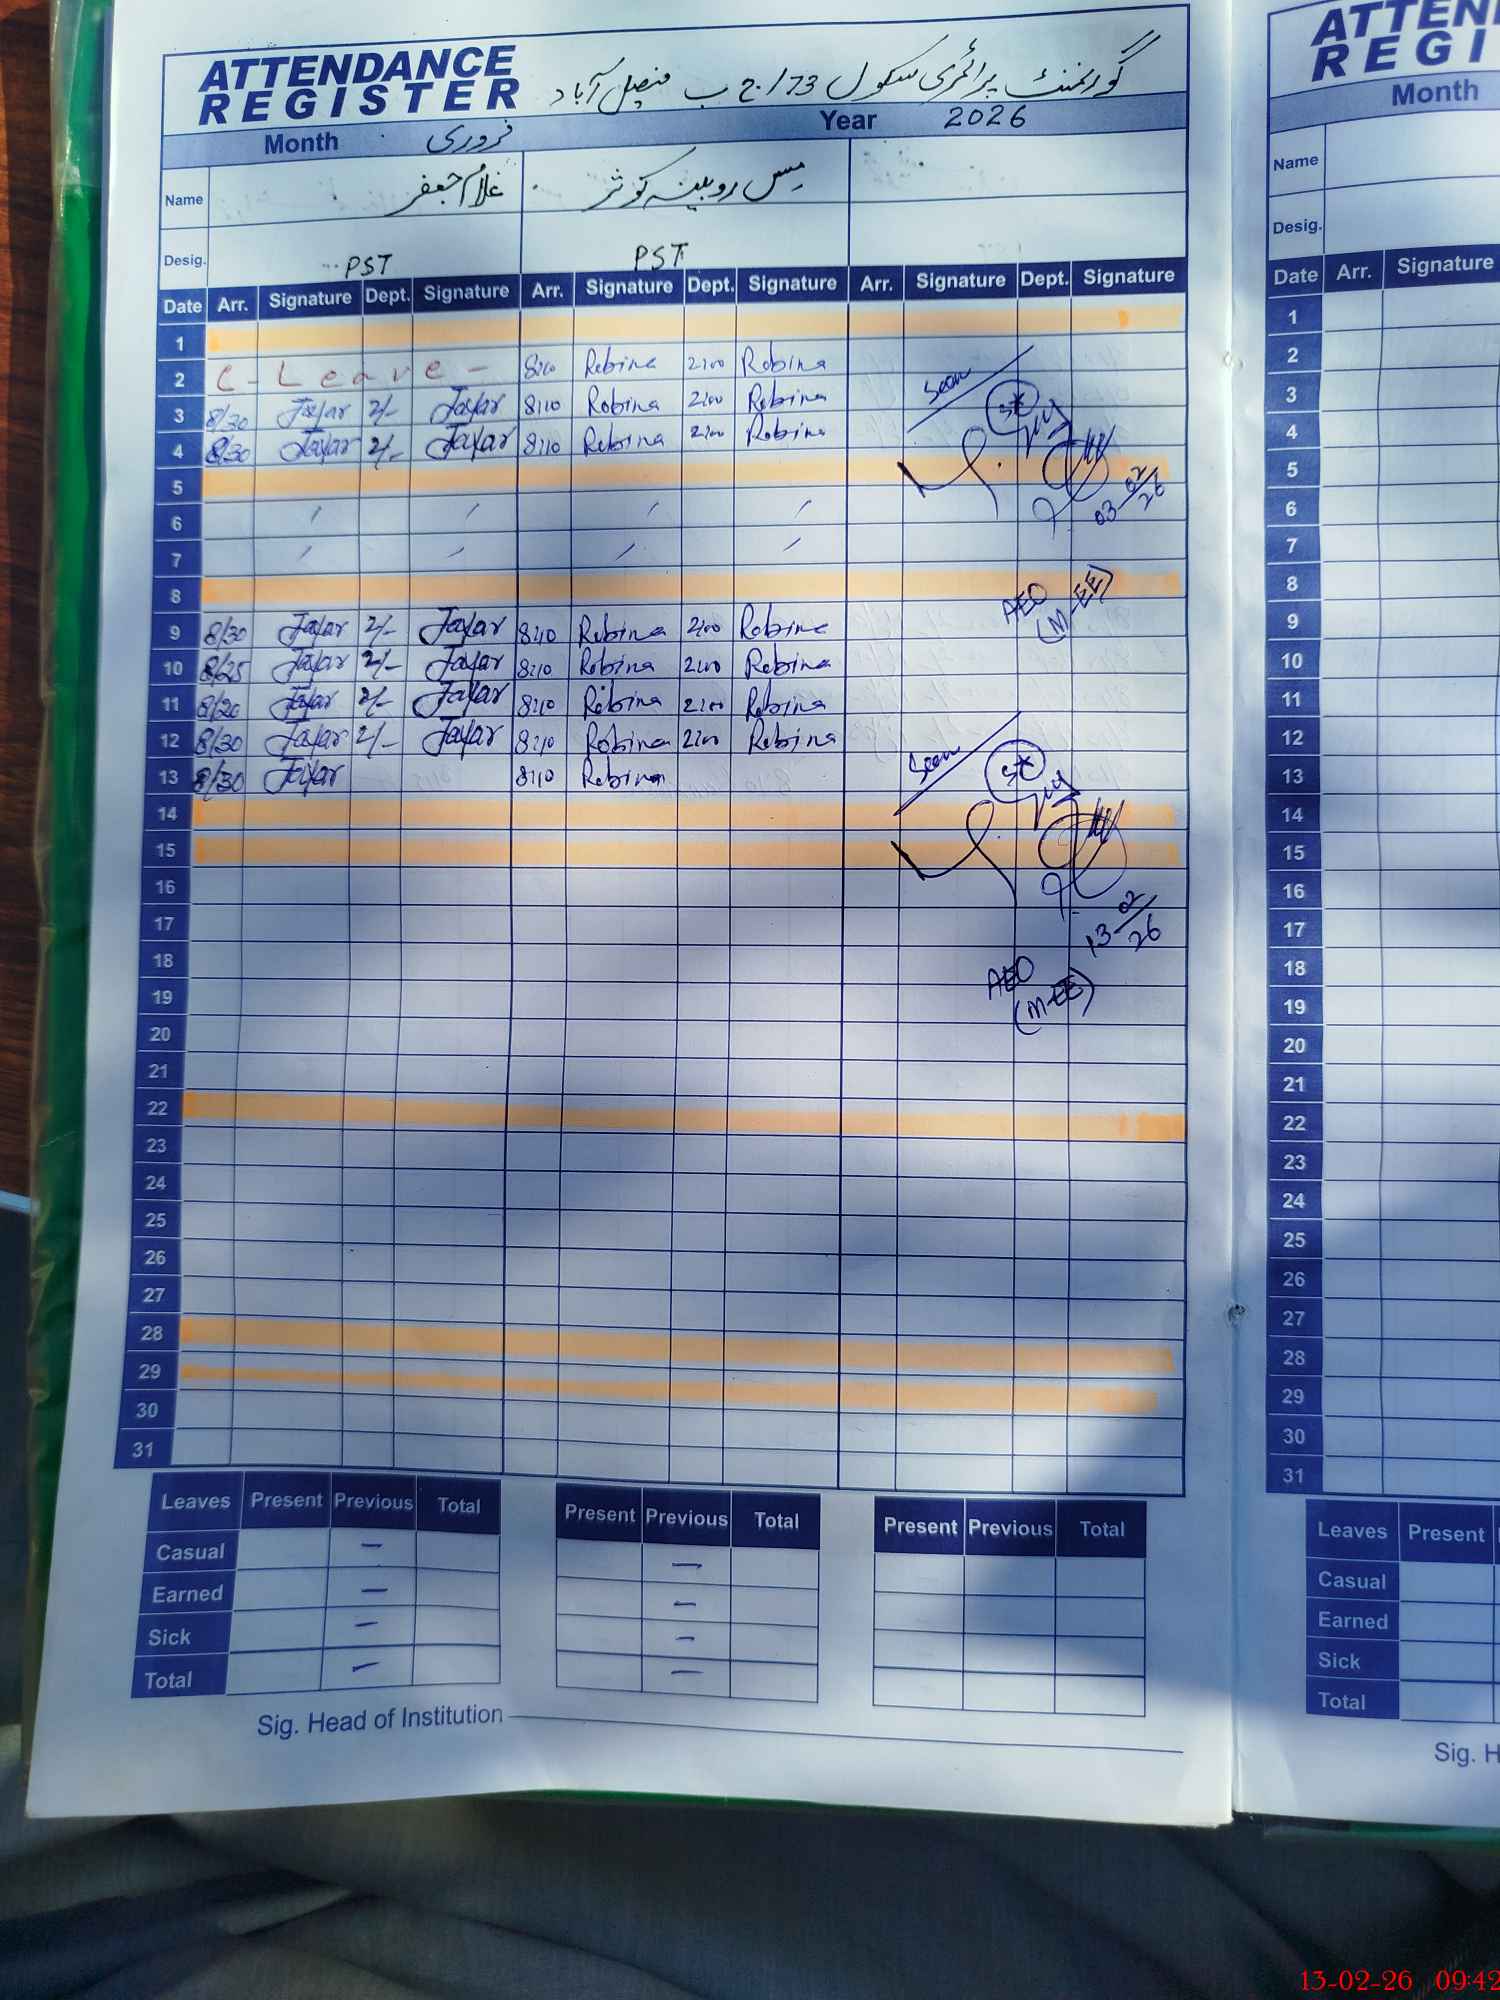 ATTENDANCE
REGISTER
گورنمنٹ پرائمری سکول 73/ج ب فیصل آباد
Month فروری Year 2026
Name غلام جعفر مس روبینہ کوثر
Desig. PST PST
Date Arr. Signature Dept. Signature Arr. Signature Dept. Signature Arr. Signature Dept. Signature
1
2 C - Leave - 8:10 Robina 2:00 Robina
3 8/30 Jafar 2/- Jafar 8:10 Robina 2:00 Robina Seen
4 8/30 Jafar 2/- Jafar 8:10 Robina 2:00 Robina
5
6 03-02/26
7
8
9 8/30 Jafar 2/- Jafar 8:10 Robina 2:00 Robina AEO (M-EE)
10 8/25 Jafar 2/- Jafar 8:10 Robina 2:00 Robina
11 8/20 Jafar 2/- Jafar 8:10 Robina 2:00 Robina
12 8/30 Jafar 2/- Jafar 8:10 Robina 2:00 Robina
13 8/30 Jafar 8:10 Robina Seen
14
15
16
17 13-02/26
18
19 AEO (M-EE)
20
21
22
23
24
25
26
27
28
29
30
31
Leaves Present Previous Total Present Previous Total Present Previous Total
Casual - -
Earned - -
Sick - -
Total - -
Sig. Head of Institution
ATTEN
REGI
Month
Name
Desig.
Date Arr. Signature
1
2
3
4
5
6
7
8
9
10
11
12
13
14
15
16
17
18
19
20
21
22
23
24
25
26
27
28
29
30
31
Leaves Present
Casual
Earned
Sick
Total
Sig. H
13-02-26 09:42